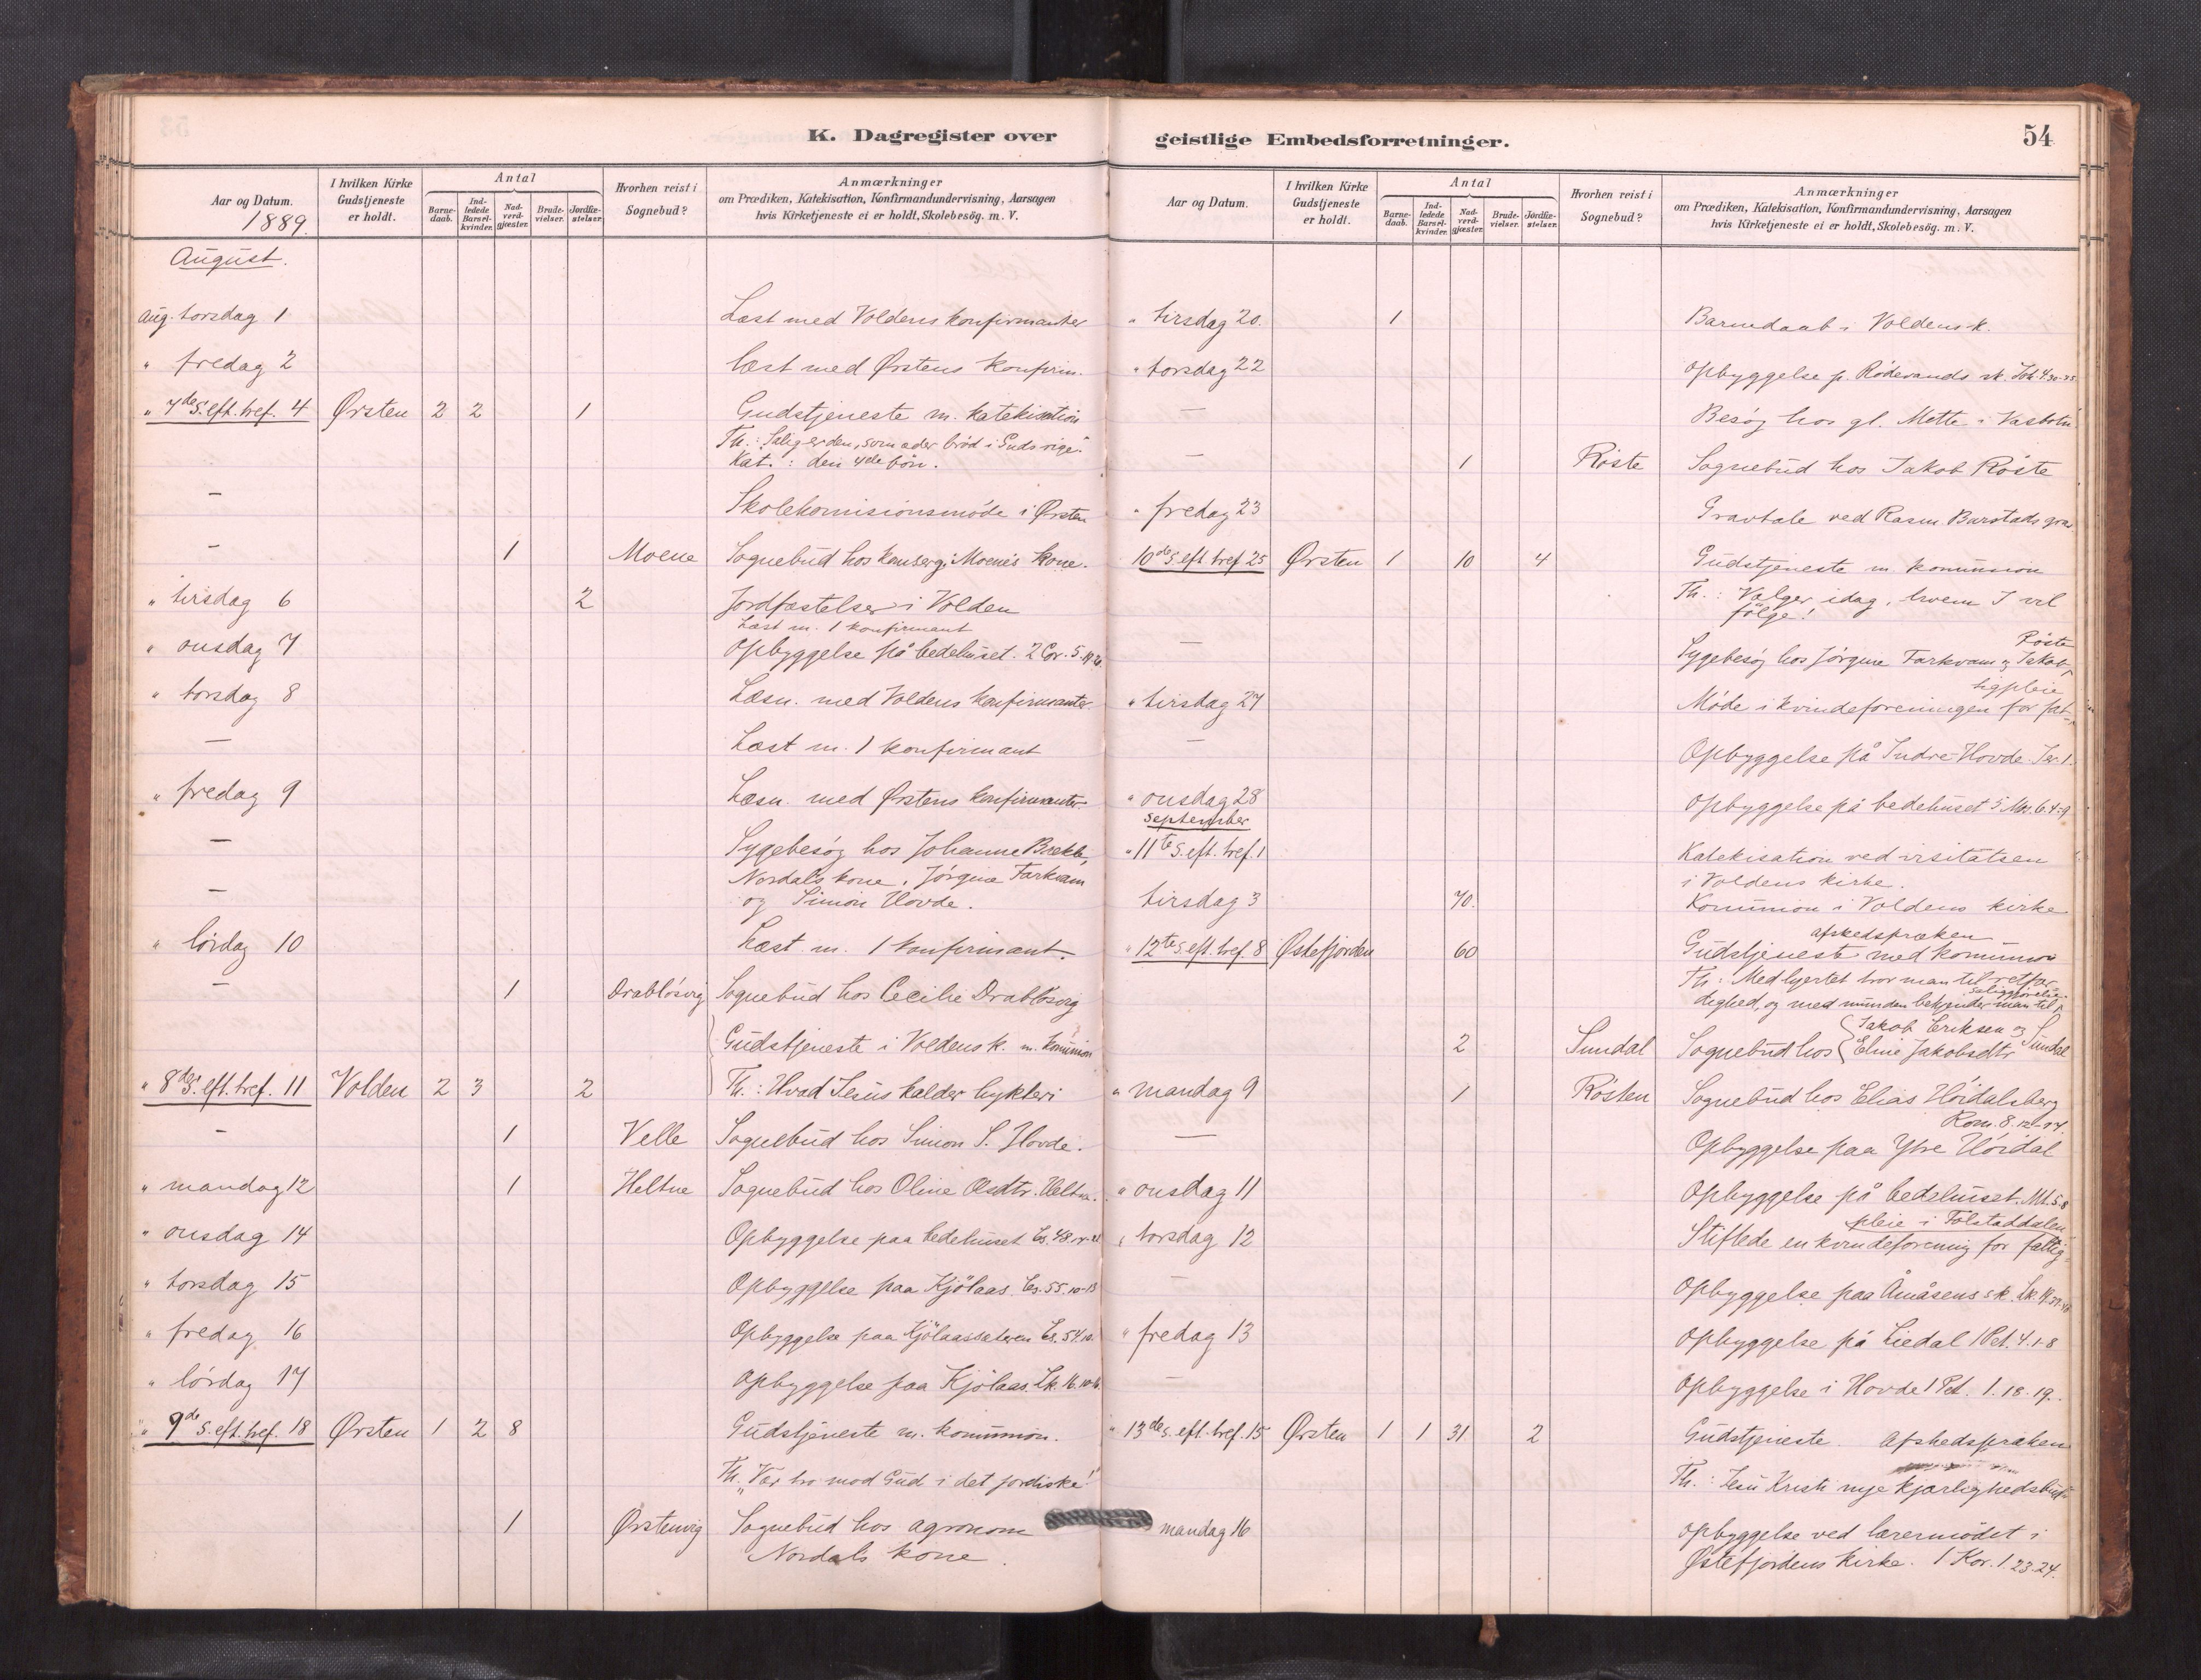 K. Dagregister over
Aar og Datum.
1889.
I hvilken Kirke
Gudstjeneste
er holdt.
Antal
Barne-
daab.
Ind-
ledede
Barsel-
kvinder.
Nad-
verd-
gjæster.
Brude-
vielser.
Jordfæ-
stelser.
Hvorhen reist i
Sognebud?
Anmærkninger
om Prædiken, Katekisation, Konfirmandundervisning, Aarsagen
hvis Kirketjeneste ei er holdt, Skolebesög. m. V.
August.
Aug. torsdag 1 Læst med Voldens konfirmanter
" fredag 2 læst med Ørstens konfirm.
" 7de S. eft. tref. 4 Ørsten 2 2 1 Gudstjeneste m. katekisation
Th.: Salig er den, som æder brød i Guds rige."
Kat.: den 4de bøn.
— Skolekomisionsmøde i Ørsten
— 1 Moene Sognebud hos Moenes kone.
" tirsdag 6 2 Jordfæstelser i Volden
Læst m. 1 konfirmant
" onsdag 7 Opbyggelse på bedehuset. 2 Cor. 5.
" torsdag 8 Læsn. med Voldens konfirmanter.
— Læst m. 1 konfirmant
" fredag 9 Læsn. med Ørstens konfirmanter.
— Sygebesøg hos Johanne Brekke,
Nordals kone, Jørgine Farkvam
— og Simon Hovde.
" lördag 10 Læst m. 1 konfirmant.
— 1 Drablösvig Sognebud hos Cecilie Drablösvig
Gudstjeneste i Voldens k. m. komunion
" 8de S. eft. tref. 11 Volden 2 3 2 Th.: Hvad Jesus kalder hykleri
— 1 Velle Sognebud hos Simon S. Hovde.
" mandag 12 1 Heltne Sognebud hos Oline Olsdtr. Heltne.
" onsdag 14 Opbyggelse paa bedehuset Es. 48.
" torsdag 15 Opbyggelse paa Kjölaas. Es. 55. 10-13
" fredag 16 Opbyggelse paa Kjölaassætren Es. 54.10.
" lördag 17 Opbyggelse paa Kjölaas. Lk. 16.
" 9de S. eft. tref. 18 Ørsten 1 2 8 Gudstjeneste m. komunion.
Th. "Vær tro mod Gud i det jordiske!"
1 Ørstenvig Sognebud hos agronom
Nordals kone.
geistlige Embedsforretninger.
54
Aar og Datum.
I hvilken Kirke
Gudstjeneste
er holdt.
Antal
Barne-
daab.
Ind-
ledede
Barsel-
kvinder.
Nad-
verd-
gjæster.
Brude-
vielser.
Jordfæ-
stelser.
Hvorhen reist i
Sognebud?
Anmærkninger
om Prædiken, Katekisation, Konfirmandundervisning, Aarsagen
hvis Kirketjeneste ei er holdt, Skolebesög. m. V.
" tirsdag 20. 1 Barnedaab i Voldens k.
" torsdag 22 Opbyggelse p. Rödevands sk. Joh. 4.
— Besøg hos gl. Mette i Vasbotn
— 1 Röste Sognebud hos Jakob Röste
" fredag 23 Gravtale ved Rasm. Barstads grav
10de S. eft. tref. 25 Ørsten 1 10 4 Gudstjeneste m. komunion
Th.: Vælger idag, hvem I vil
følge!
Röste
— Sygebesøg hos Jørgine Farkvam og Jakob
tigpleie
" tirsdag 27 Møde i kvindeforeningen for fat-
— Opbyggelse på Indre-Hovde. Jer. 1.
" onsdag 28 Opbyggelse på bedehuset 5 Mos. 6. 4-9
September
" 11te S. eft. tref. 1 Katekisation ved visitatsen
i Voldens kirke.
tirsdag 3 70. Komunion i Voldens kirke
afskedspræken
" 12te S. eft. tref. 8 Østefjorden 60 Gudstjeneste med komunion
Th: Med hjertet tror man til retfær-
saliggjörelse.
dighed, og med munden bekjender man til
Jakob Eriksen og
2 Sundal Sognebud hos Eline Jakobsdtr Sundal
" mandag 9 1 Rösten Sognebud hos Elias Höidalsberg
Rom. 8. 12-14.
— Opbyggelse paa Ytre Höidal
" onsdag 11 Opbyggelse på bedehuset. Mt. 5.8
pleie i Folstaddalen
" torsdag 12 Stiftede en kvindeforening for fattig-
— Opbyggelse paa Åmåsens sk. Lk.
" fredag 13 Opbyggelse på Liedal 1 Pet. 4. 1-8
— Opbyggelse i Hovde 1 Pet. 1. 18-19.
" 13de S. eft. tref. 15 Ørsten 1 1 31 2 Gudstjeneste. Afskedspræken
Th.: Jesu Kristi nye kjærlighedsbud
mandag 16 Opbyggelse ved lærermödet i
Østefjordens kirke. 1 Kor. 1 23-24.